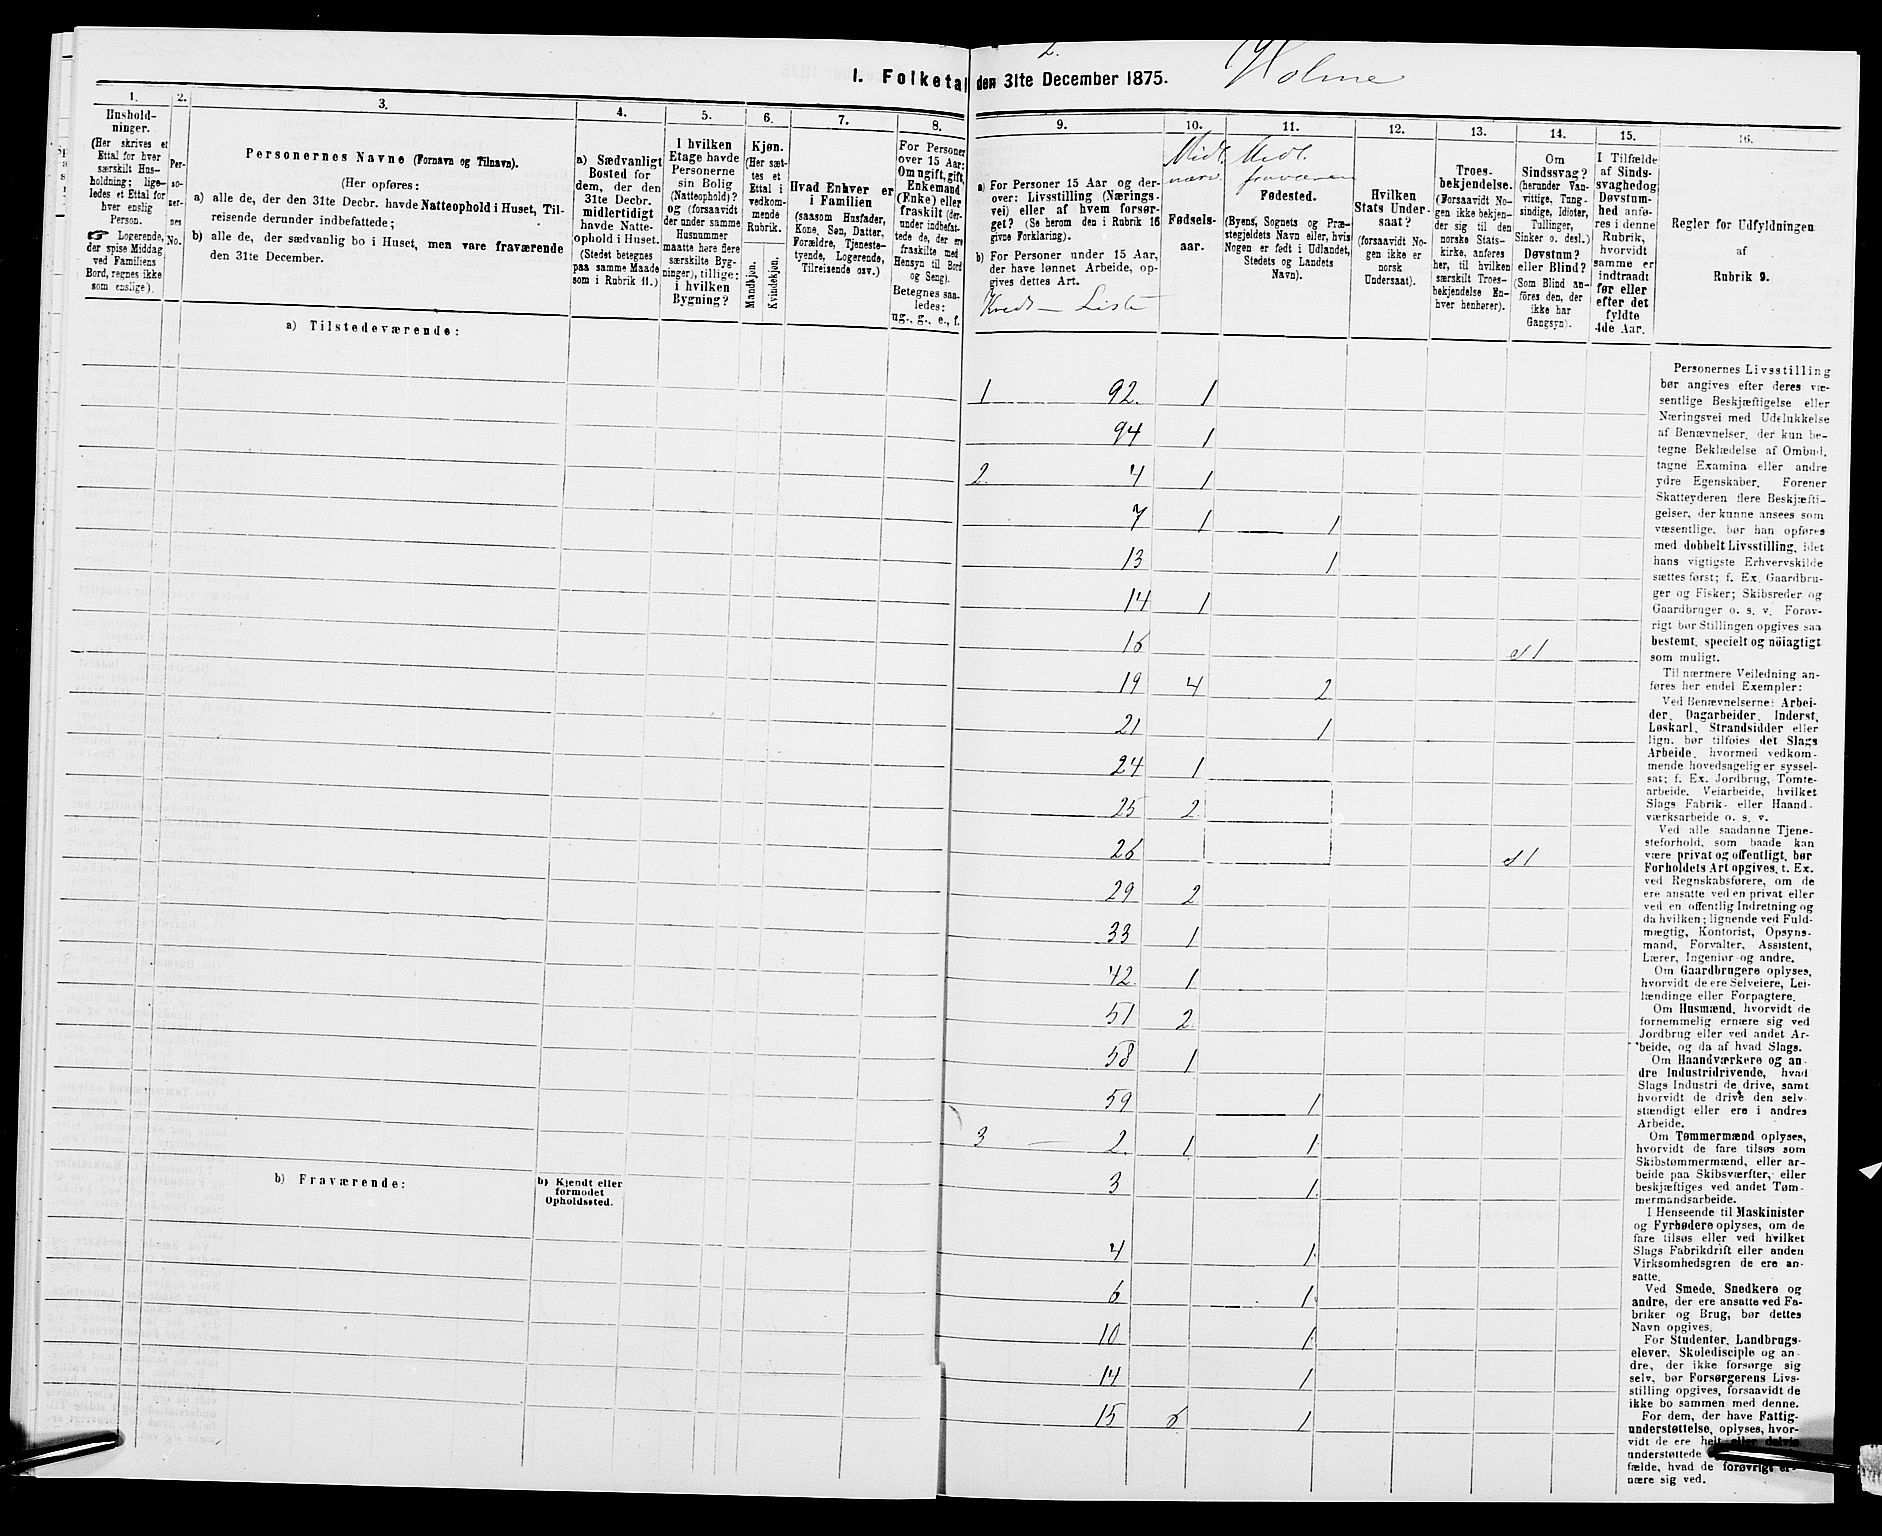 I. Folketal den 31te December 1875.
2.
Holme
1.
Hushold-
ninger.
(Her skrives et
Ettal for hver
særskilt Hus-
holdning; lige-
ledes et Ettal for
hver enslig
Person.
☞ Logerende,
der spise Middag
ved Familiens
Bord, regnes ikke
som enslige).
2.
Per-
so-
ner-
nes
No.
3.
Personernes Navne (Fornavn og Tilnavn).
(Her opføres:
a) alle de, der den 31te Decbr. havde Natteophold i Huset, Til-
reisende derunder indbefattede;
b) alle de, der sædvanlig bo i Huset, men vare fraværende
den 31te December.
4.
a) Sædvanligt
Bosted for
dem, der den
31te Decbr.
midlertidigt
havde Natte-
ophold i Huset.
(Stedet betegnes
paa samme Maade
som i Rubrik 11.)
5.
I hvilken
Etage havde
Personerne
sin Bolig
(Natteophold)?
og (forsaavidt
der under samme
Husnummer
maatte høre flere
særskilte Byg-
ninger), tillige:
i hvilken
Bygning?
6.
Kjøn.
(Her sæt-
tes et
Ettal i
vedkom-
mende
Rubrik.
Mandkjøn.
Kvindekjøn.
7.
Hvad Enhver er
i Familien
(saasom Husfader,
Kone, Søn, Datter,
Forældre, Tjeneste-
tyende, Logerende,
Tilreisende osv.)
8.
For Personer
over 15 Aar:
Om ugift, gift,
Enkemand
(Enke) eller
fraskilt (der-
under indbefat-
tede de, der ere
fraskilte med
Hensyn til Bord
og Seng).
Betegnes saa-
ledes:
ug., g., e., f.
9.
a) For Personer 15 Aar og der-
over: Livsstilling (Nærings-
vei) eller af hvem forsør-
get? (Se herom den i Rubrik 16
givne Forklaring).
b) For Personer under 15 Aar,
der have lønnet Arbeide, op-
gives dettes Art.
Kreds- Liste
10.
Midl.
nærv.
Fødsels-
aar.
11.
Midl.
fraværen
Fødested.
(Byens, Sognets og Præ-
stegjeldets Navn eller, hvis
Nogen er født i Udlandet,
Stedets og Landets
Navn).
12.
Hvilken
Stats Under-
saat?
(forsaavidt No-
gen ikke er
norsk
Undersaat).
13.
Troes-
bekjendelse.
(Forsaavidt No-
gen ikke bekjen-
der sig til den
norske Stats-
kirke, anføres
her, til hvilken
særskilt Troes-
bekjendelse En-
hver henhører).
14.
Om
Sindssvag?
(herunder Van-
vittige, Tung-
sindige, Idioter,
Tullinger,
Sinker o. desl.)
Døvstum?
eller Blind?
(Som Blind an-
føres den, der
ikke har
Gangsyn).
15.
I Tilfælde
af Sinds-
svaghedog
Døvstum-
hed anfø-
res i denne
Rubrik,
hvorvidt
samme er
indtraadt
før eller
efter det
fyldte
4de Aar.
16.
Regler for Udfyldningen
af
Rubrik 9.
a) Tilstedeværende:
1 92. 1
94 1
2. 4 1
7 1 1
13 1
14 1
16 s1
19 4 2
21 1
24 1
25 2
26 s1
29 2
33 1
42. 1
51 2
58 1
59 1
3 2. 1 1
b) Fraværende:
b) Kjendt eller
formodet
Opholdssted.
3 1
4 1
6 1
10 1
14 1
15 6 1
Personernes Livsstilling
bør angives efter deres væ-
sentlige Beskjæftigelse eller
Næringsvei med Udelukkelse
af Benævnelser, der kun be-
tegne Beklædelse af Ombud,
tagne Examina eller andre
ydre Egenskaber. Forener
Skatteyderen flere Beskjæfti-
gelser, der kunne ansees som
væsentlige, bør han opføres
med dobbelt Livsstilling, idet
hans vigtigste Erhvervskilde
sættes først; f. Ex. Gaardbru-
ger og Fisker; Skibsreder og
Gaardbruger o. s. v. Forøv-
rigt bør Stillingen opgives saa
bestemt, specielt og nöiagtigt
som muligt.
Til nærmere Veiledning an-
føres her endel Exempler:
Ved Benævnelserne: Arbei-
der, Dagarbeider, Inderst,
Løskarl, Strandsidder eller
lign. bør tilføies det Slags
Arbeide, hvormed vedkom-
mende hovedsagelig er syssel-
sat; f. Ex. Jordbrug, Tomte-
arbeide, Veiarbeide, hvilket
Slags Fabrik- eller Haand-
værksarbeide o. s. v.
Ved alle saadanne Tjene-
steforhold, som baade kan
være privat og offentligt, bør
Forholdets Art opgives, t. Ex.
ved Regnskabsførere, om de
ere ansatte ved en privat eller
ved en offentlig Indretning og
da hvilken; lignende ved Fuld-
mægtig, Kontorist, Opsyns-
mand, Forvalter, Assistent,
Lærer, Ingeniør og andre.
Om Gaardbrugere oplyses,
hvorvidt de ere Selveiere, Lei-
lændinge eller Forpagtere.
Om Husmænd, hvorvidt de
fornemmelig ernære sig ved
Jordbrug eller ved andet Ar-
beide, og da af hvad Slags.
Om Haandværkere og an-
dre Industridrivende, hvad
Slags Industri de drive, samt
hvorvidt de drive den selv-
stændigt eller ere i andres
Arbeide.
Om Tømmermænd oplyses,
hvorvidt de fare tilsøs som
Skibstømmermænd, eller ar-
beide paa Skibsværfter, eller
beskjæftiges ved andet Tøm-
mermandsarbeide.
I Henseende til Maskinister
og Fyrbødere oplyses, om de
fare tilsøs eller ved hvilket
Slags Fabrikdrift eller anden
Virksomhedsgren de ere an-
satte.
Ved Smede, Snedkere og
andre, der ere ansatte ved Fa-
briker og Brug, bør dettes
Navn opgives.
For Studenter, Landbrugs-
elever, Skoledisciple og an-
dre, der ikke forsørge sig
selv, bør Forsørgerens Livs-
stilling opgives, forsaavidt de
ikke bo sammen med denne.
For dem, der have Fattig-
understøttelse, oplyses, hvor-
vidt de ere helt eller delvis
understøttede
fælde, hvad de forøvrigt er-
nære sig ved.